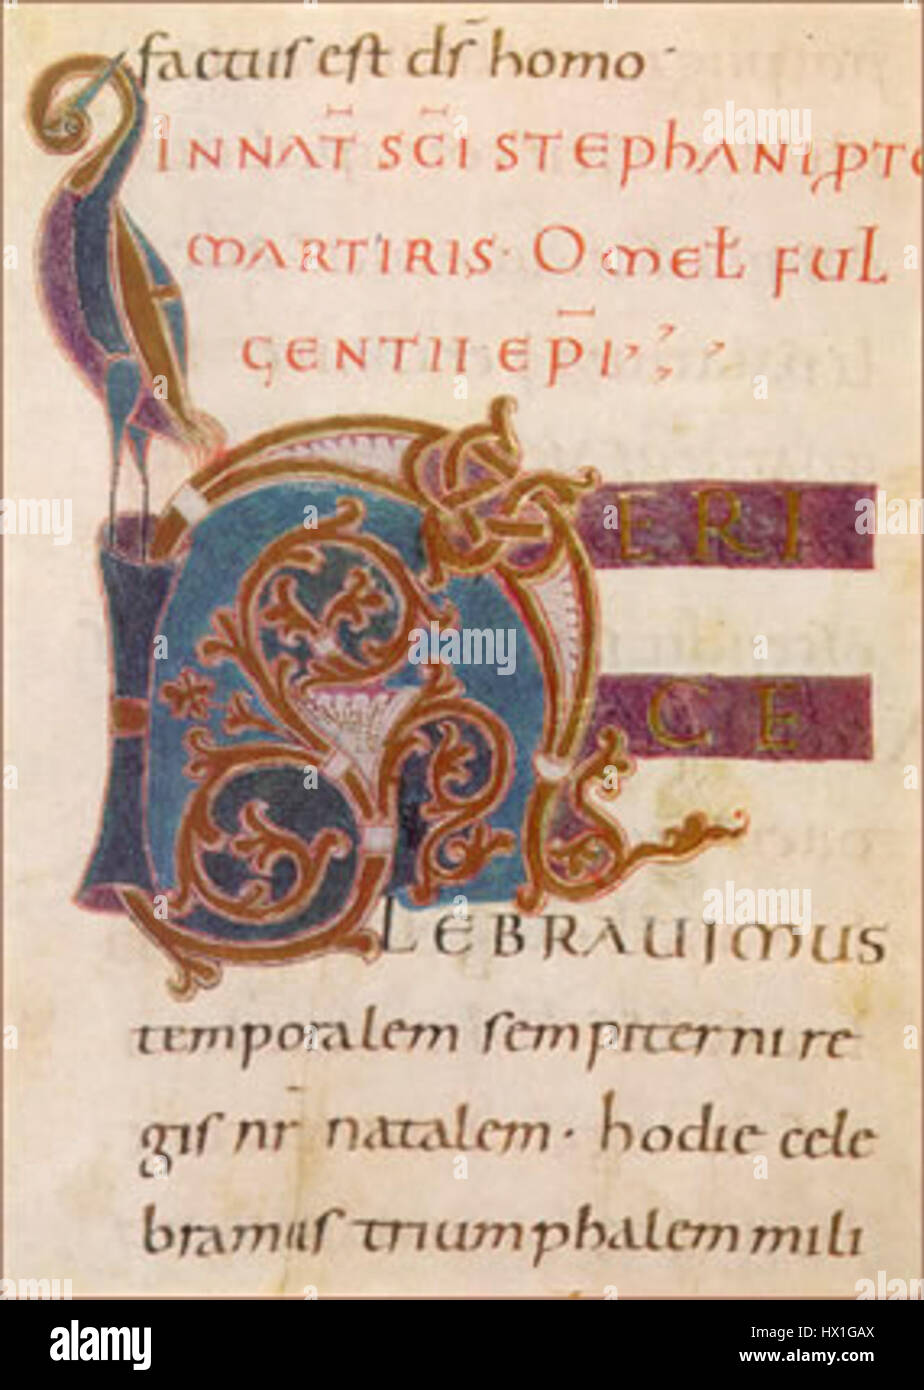 factus est dr̄ homo
IN NAT̄ SC̄I STEPHANI PTO
MARTIRIS· OMEŁ FUL
GENTII EP̄I
HERI
CE
LEBRAUIMUS
temporalem sempiterni re
gis nr̄i natalem· hodie cele
bramus triumphalem mili
alamy
Image ID: HX1GAX
www.alamy.com